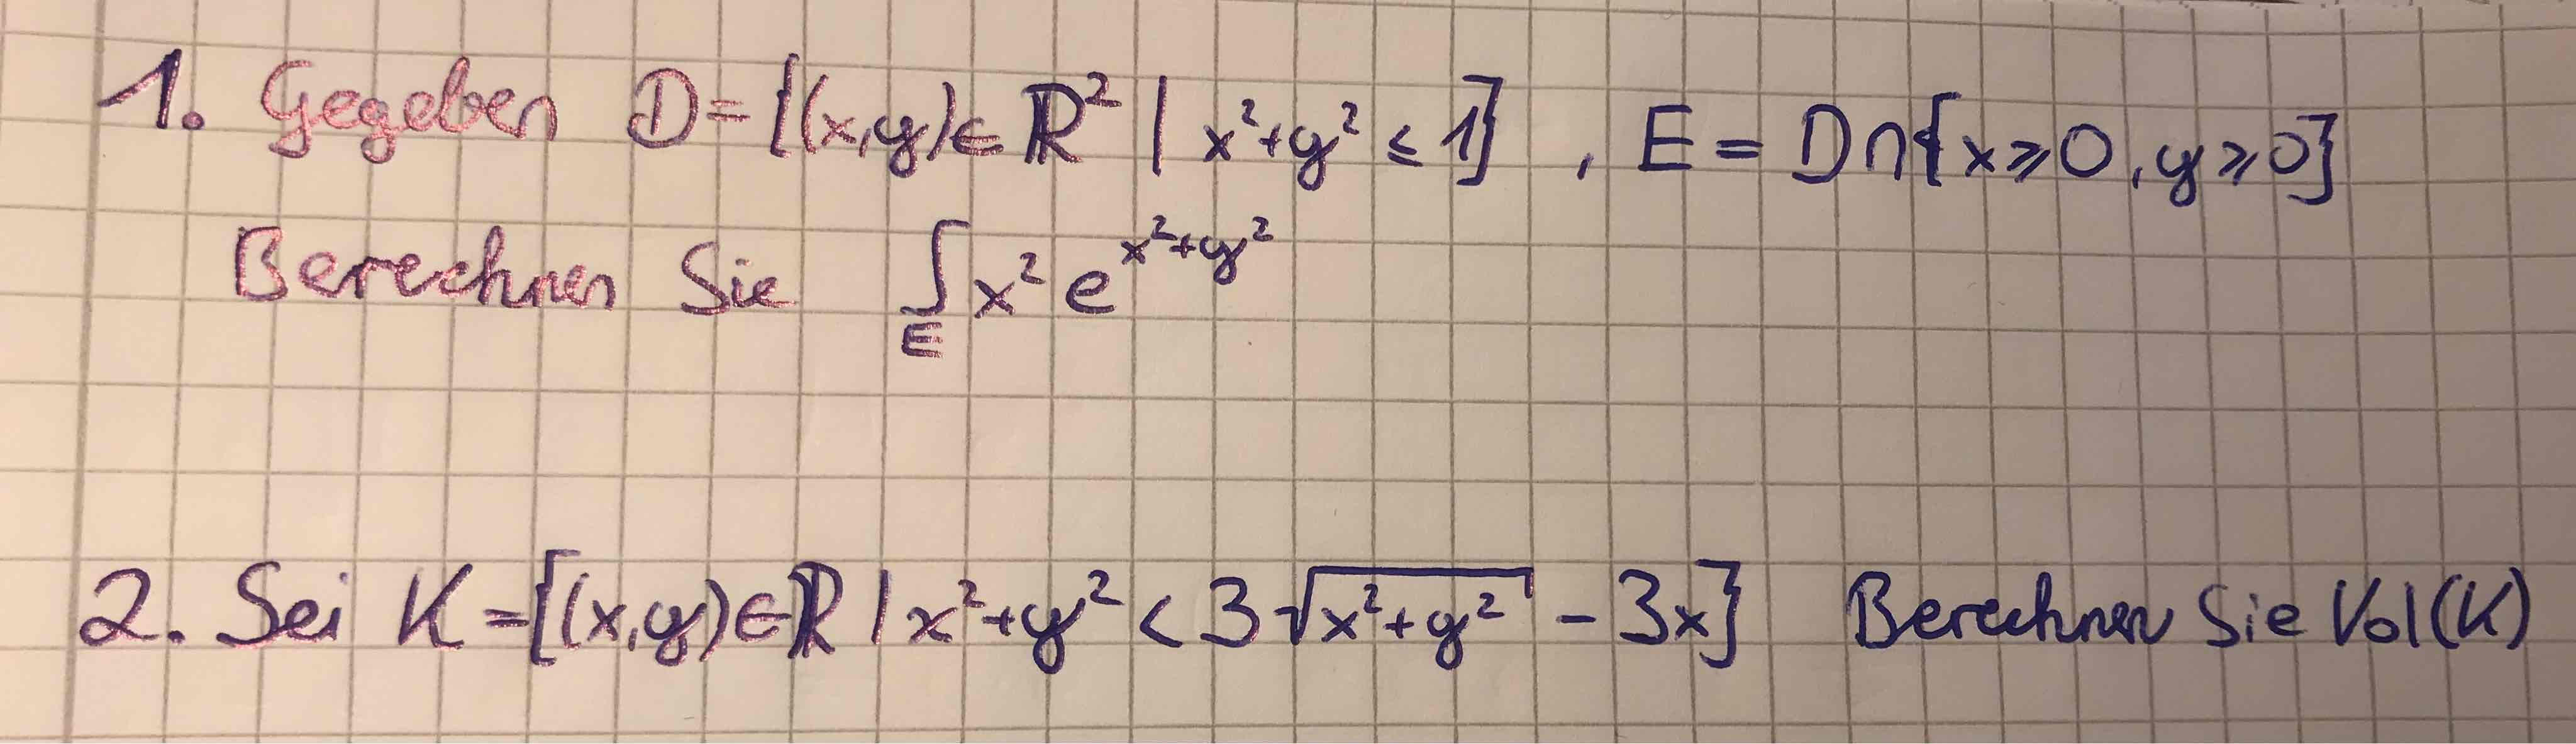 1. Gegeben D={(x,y)∈ℝ² | x²+y² ≤ 1} , E = D∩{x⩾0, y⩾0}
Berechnen Sie ∫_E x² e^{x²+y²}
2. Sei K={(x,y)∈ℝ | x²+y² < 3√(x²+y²) - 3x} Berechnen Sie Vol(K)